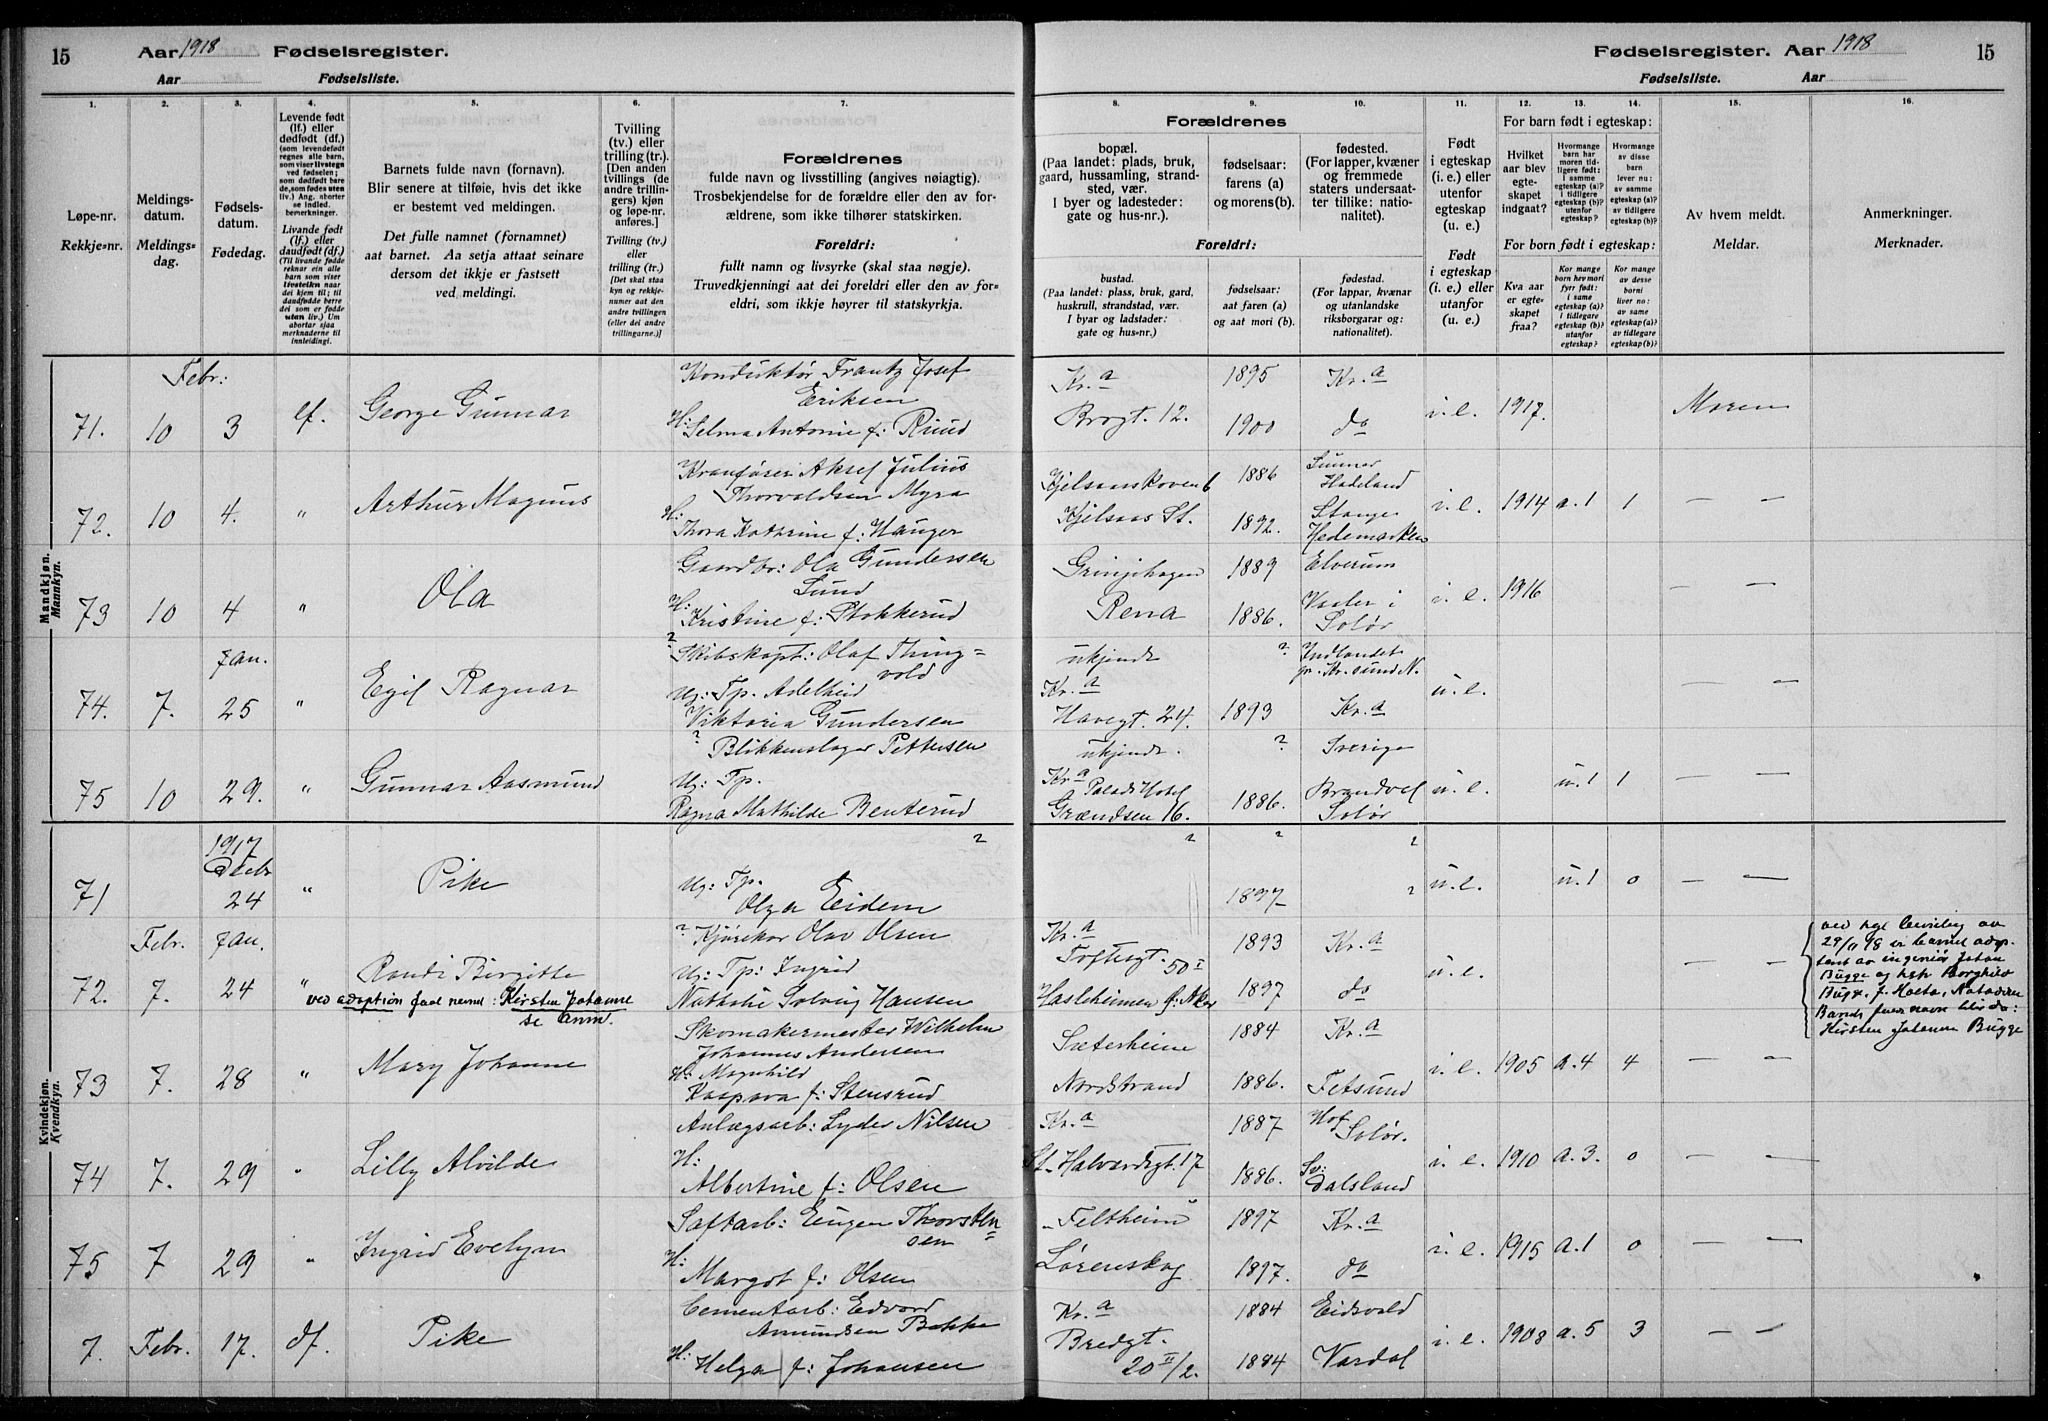 15 Aar 1918 Fødselsregister.
Aar Fødselsliste.
Fødselsregister. Aar 1918 15
Fødselsliste. Aar
1. 2. 3. 4. 5. 6. 7.
Løpe-nr.
Rekkje-nr.
Meldings-
datum.
Meldings-
dag.
Fødsels-
datum.
Fødedag.
Levende født
(lf.) eller
dødfødt (df.)
(som levendefødt
regnes alle barn,
som viser livstegn
ved fødselen;
som dødfødt bare
de, som fødes uten
liv.) Ang. aborter
se indled.
bemerkninger.
Livande født
(lf.) eller
daudfødt (df.)
(Til livande fødde
reknar ein alle
barn som viser
livsteikn naar
dei kjem til; til
daudfødde berre
dei som er fødde
utan liv.) Um
abortar sjaa
merknaderne til
innleidingi.
Barnets fulde navn (fornavn).
Blir senere at tilføie, hvis det ikke
er bestemt ved meldingen.
Det fulle namnet (fornamnet)
aat barnet. Aa setja attaat seinare
dersom det ikkje er fastsett
ved meldingi.
Tvilling
(tv.) eller
trilling (tr.).
[Den anden
tvillings (de
andre trillin-
gers) kjøn
og løpe-nr.
anføres.]
Tvilling (tv.)
eller
trilling (tr.)
[Det skal staa
kyn og rekkje-
numer aat den
andre tvillingen
(eller dei andre
trillingarne.)]
Forældrenes
fulde navn og livsstilling (angives nøiagtig).
Trosbekjendelse for de forældre eller den av for-
ældrene, som ikke tilhører statskirken.
Foreldri:
fullt namn og livsyrke (skal staa nøgje).
Truvedkjenningi aat dei foreldri eller den av for-
eldri, som ikkje høyrer til statskyrkja.
8. 9. 10. 11. 12. 13. 14. 15. 16.
Forældrenes
bopæl.
(Paa landet: plads, bruk,
gaard, hussamling, strand-
sted, vær.
I byer og ladesteder:
gate og hus-nr.).
fødselsaar:
farens (a)
og morens (b).
fødested.
(For lapper, kvæner
og fremmede
staters undersaat-
ter tillike: natio-
nalitet).
Foreldri:
bustad.
(Paa landet: plass, bruk, gard,
huskrull, strandstad, vær.
I byar og ladstader:
gate og hus-nr.)
fødselsaar:
aat faren (a)
og aat mori (b).
fødestad.
(For lappar, kvænar
og utanlandske
riksborgarar og:
nationalitet).
Født
i egteskap
(i. e.) eller
utenfor
egteskap
(u. e.)
Født
i egteskap
(i. e.) eller
utanfor
egteskap
(u. e.)
For barn født i egteskap:
Hvilket
aar blev
egte-
skapet
indgaat?
Hvormange
barn har
moren tid-
ligere født:
i samme
egteskap (a)?
i tidligere
egteskap (b)?
utenfor
egteskap?
Hvormange
av disse
barn
lever nu:
av samme
egteskap (a)?
av tidligere
egteskap (b)?
For born født i egteskap:
Kva aar
er egte-
skapet
fraa?
Kor mange
born hev mori
fyrr født:
i same
egteskap (a)?
i tidlegare
egteskap (b)?
utanfor
egteskap?
Kor mange
av desse
borni
liver no:
av same
egteskap (a)?
av tidlegare
egteskap (b)?
Av hvem meldt.
Meldar.
Anmerkninger.
Merknader.
Mandkjøn.
Mannkyn.
Febr:
71. 10 3 lf. George Gunnar
Konduktør Frantz Josef
Eriksen
H: Selma Antonie f: Ruud
Kr.a 1895 Kr.a
Brogt. 12. 1900 do i. e. 1917. Moren
72. 10 4. " Arthur Magnus
Kranfører Aksel Julius
Thorvaldsen Myra
H:
Thora Kathrine f: Hauger
Kjelsaaskoven 6 1886 Gunnar
Hadeland
Kjelsaas St. 1892. Stange
Hedemarken
i. e. 1914 a. 1 1 — —
73 10 4 " Ola
Gaardbr: Ola Gundersen
Lund
H: Kristine f: Stokkerud
Grinjihagen 1889 Elverum
Rena 1886. Vaaler i
Solør
i. e. 1916 — —
Jan.
74. 7. 25 " Egil Ragnar
? Skibskapt: Olaf Thing=
vold
Ug: Tp. Adelheid
Viktoria Gundersen
ukjendt ? Indlandet
pr. Kr.sund N.
Kr.a
Havegt. 24. 1893 Kr.a u. e. — —
75 10 29. " Gunnar Aasmund
? Blikkenslager Pettersen
Ug: Tp.
Ragna Mathilde Benterud
ukjendt. ? Sverige
Kr.a Palads Hotel
Grændsen 16. 1886. Brandval
Solør
u. e. u. 1 1 — —
Kvindekjøn.
Kvendkyn.
1917
Decbr
71 24 " Pike
?
Ug: Tp.
Olga Eidem
? ? ?
1897 ? u. e. u. 1 0 — —
Febr. Jan.
72. 7. 24 " Randi Birgitte
ved adoption facl nevnd: Kirsten Johanne
se anm.
? Kjørekar Olav Olsen
Ug: Tp: Ingrid
Nathalie Solveig Hansen
Kr.a 1893 Kr.a
Toftesgt. 50 II
Hasleheimen Ø. Aker 1897 do u. e. — —
ved kgl bevilling av
29/11 18 er barnet adop-
tert av ingeniør Johan
Bugge og hstr Borghild
Bugge f. Holta, Notodden
Barnets fulde navn blir da:
Kirsten Johanne Bugge
73 7. 28 " Mary Johanne
Skomakermester Wilhelm
Johannes Andersen
H: Magnhild
Kaspara f: Stensrud
Sæterheim 1884 Kr.a
Nordstrand 1886. Fetsund
i. e. 1905 a. 4 4 — —
74 7. 29 " Lilly Alvilde
Anlægsarb: Lyder Nilsen
H:
Albertine f: Olsen
Kr.a 1887 Hof
Solør.
St. Halvardsgt. 17 1886. Sv:
Dalsland
i. e. 1910 a. 3. 0 — —
75 7 29 " Ingrid Evelyn
Saftarb: Eugen Thorsten
=sen
H:
Margot f: Olsen
"Feltheim" 1897 Kr.a
Lørenskog 1897. do
i. e. 1915 a. 1 0 — —
7. Febr. 17. df. Pike
Cementarb: Edvard
Amundsen Bakke
H: Helga f: Johansen
Kr.a 1884 Eidsvold
Bredgt.
20 II/2. 1884 Vardal
i. e. 1908 a. 5 3 — —